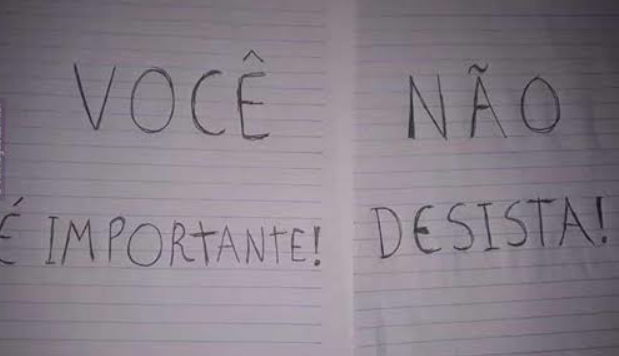 VOCÊ NÃO
É IMPORTANTE! DESISTA!